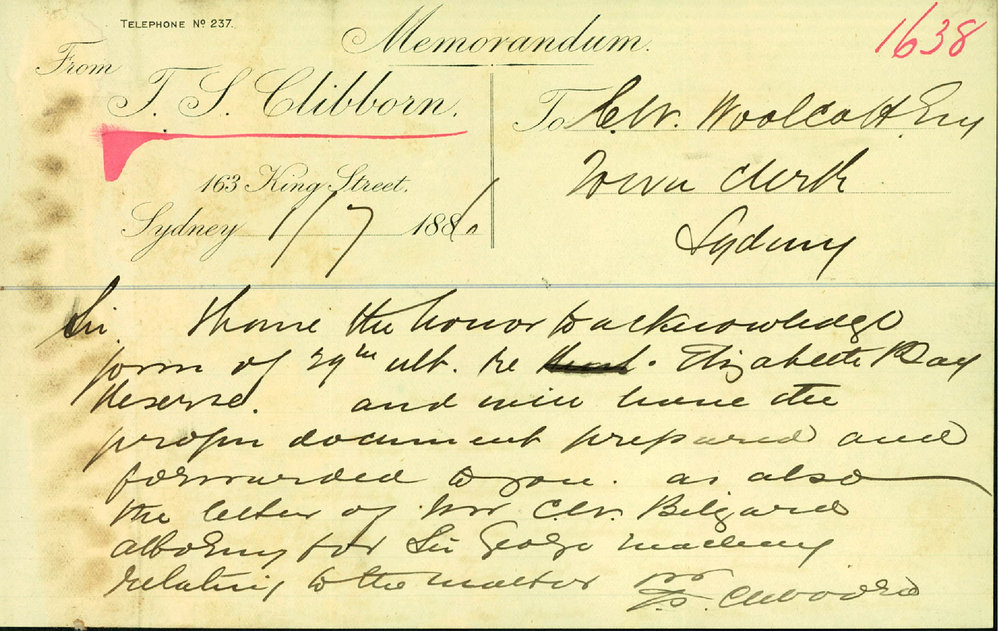 TELEPHONE No 237.
1638
Memorandum.
From
T. S. Clibborn.
To C.W. Woolcott Esq
Town Clerk
Sydney
163 King Street.
Sydney 1/7 1886
Sir I have the honor to acknowledge
yours of 29th ult. re Elizabeth Bay
Reserve. and will have the
proper document prepared and
forwarded to you. as also
the letter of Mr C.W.
attorney for Sir George Macleay
relating to the matter
T.S. Clibborn